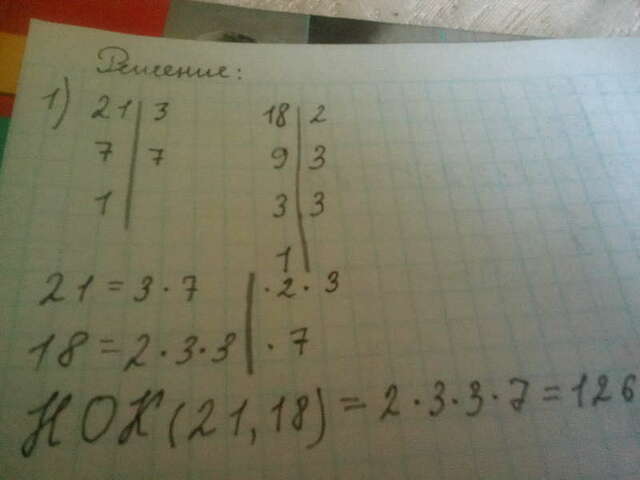 Решение:
1) 21 | 3 18 | 2
7 | 7 9 | 3
1 | 3 | 3
1 |
21 = 3 · 7 | · 2 · 3
18 = 2 · 3 · 3 | · 7
НОК (21, 18) = 2 · 3 · 3 · 7 = 126